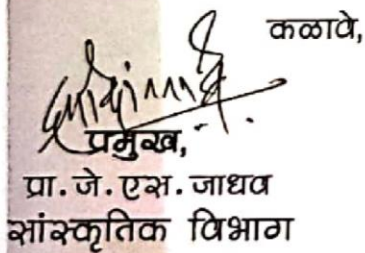 कळावे,
प्रमुख,
प्रा. जे. एस. जाधव
सांस्कृतिक विभाग